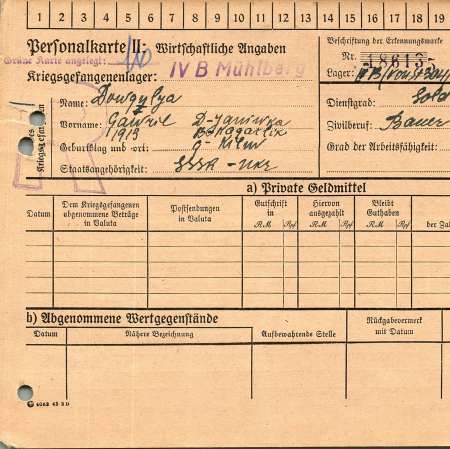 1 2 3 4 5 6 7 8 9 10 11 12 13 14 15 16 17 18 19
Personalkarte II: Wirtschaftliche Angaben
Grüne Karte angelegt:
Kriegsgefangenenlager: IV B Mühlberg
Beschriftung der Erkennungsmarke
Nr. 18613
Lager:
Name: Dowgulya
Vorname: Gawril
1913
Geburtstag und -ort:
Staatsangehörigkeit: SSSR - Ukr
Dienstgrad: Sold
Zivilberuf: Bauer
Grad der Arbeitsfähigkeit:
Kriegsgefangenen
a) Private Geldmittel
Datum
Dem Kriegsgefangenen abgenommene Beträge in Valuta
Postsendungen in Valuta
Gutschrift in
RM Rpf
Hiervon ausgezahlt
RM Rpf
Bleibt Guthaben
RM Rpf
b) Abgenommene Wertgegenstände
Datum
Nähere Bezeichnung
Aufbewahrende Stelle
Rückgabevermerk mit Datum